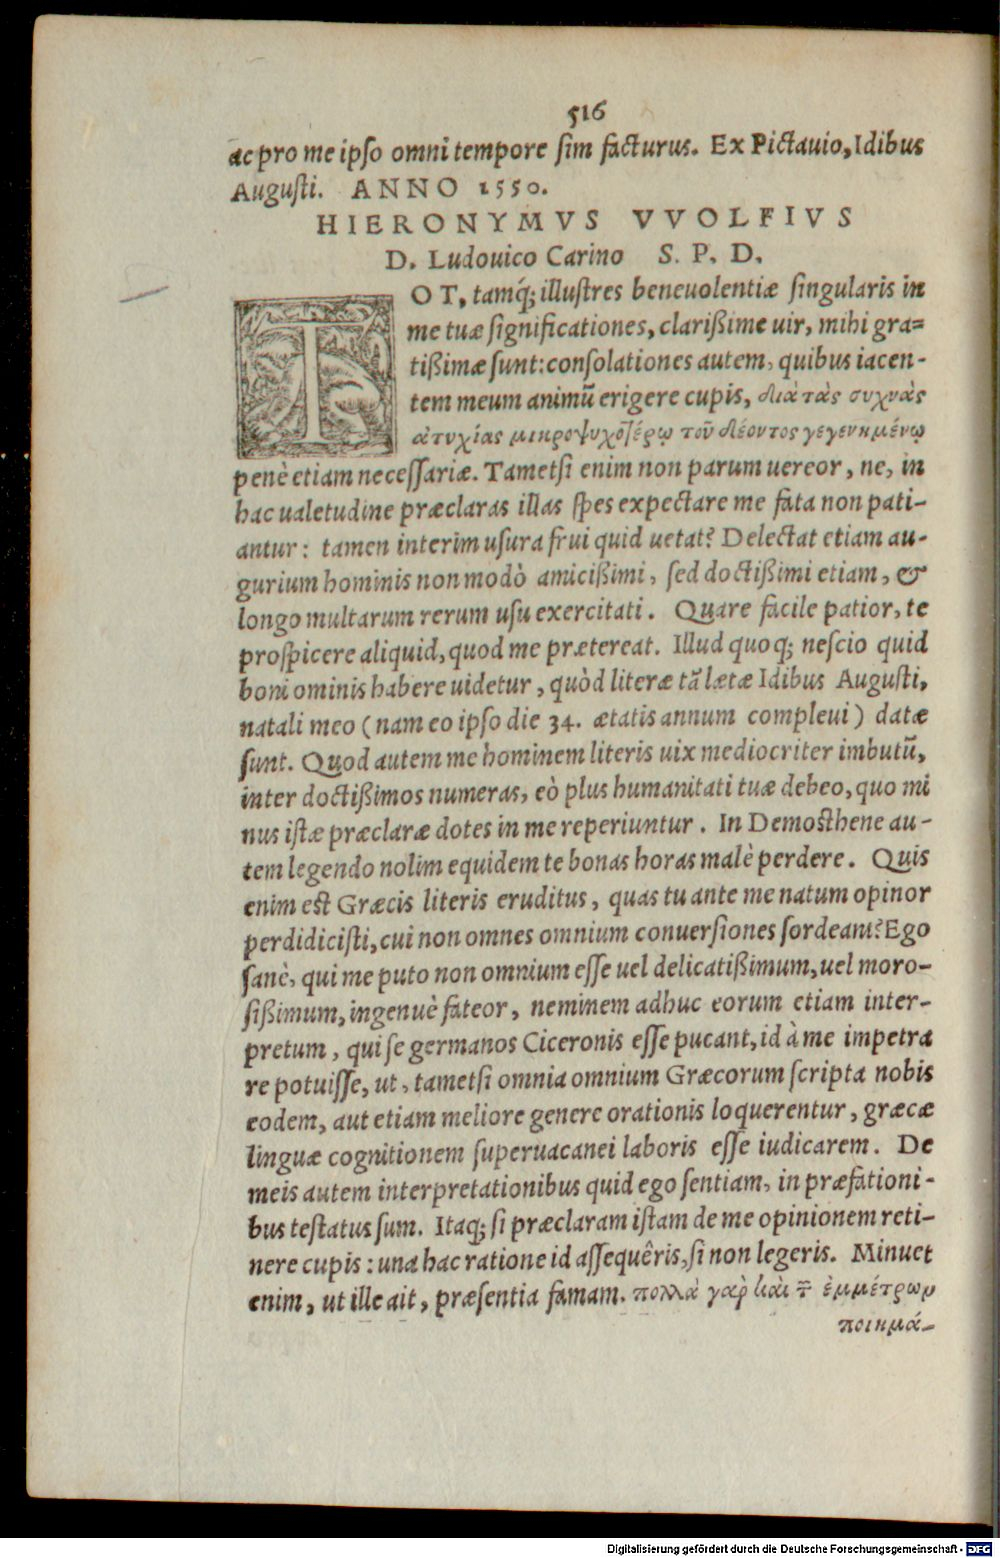 516
ac pro me ipso omni tempore sim facturus. Ex Pictauio, Idibus
Augusti. ANNO 1550.
HIERONYMVS VVOLFIVS
D. Ludouico Carino S. P. D.
TOT, tamq́; illustres beneuolentiæ singularis in
me tuæ significationes, clarißime uir, mihi gra=
tißimæ sunt: consolationes autem, quibus iacen-
tem meum animũ erigere cupis, διὰ τὰς συχνὰς
ἀτυχίας μικροψυχοτέρῳ τοῦ δέοντος γεγενημένῳ
penè etiam necessariæ. Tametsi enim non parum uereor, ne, in
hac ualetudine præclaras illas spes expectare me fata non pati-
antur: tamen interim usura frui quid uetat? Delectat etiam au-
gurium hominis non modò amicißimi, sed doctißimi etiam, &
longo multarum rerum usu exercitati. Quare facile patior, te
prospicere aliquid, quod me prætereat. Illud quoq; nescio quid
boni ominis habere uidetur, quòd literæ tã lætæ Idibus Augusti,
natali meo (nam eo ipso die 34. ætatis annum compleui) datæ
sunt. Quod autem me hominem literis uix mediocriter imbutũ,
inter doctißimos numeras, eò plus humanitati tuæ debeo, quo mi
nus istæ præclaræ dotes in me reperiuntur. In Demosthene au-
tem legendo nolim equidem te bonas horas malè perdere. Quis
enim est Græcis literis eruditus, quas tu ante me natum opinor
perdidicisti, cui non omnes omnium conuersiones sordeant? Ego
sanè, qui me puto non omnium esse uel delicatißimum, uel moro-
sißimum, ingenuè fateor, neminem adhuc eorum etiam inter-
pretum, qui se germanos Ciceronis esse pucant, id à me impetra
re potuisse, ut, tametsi omnia omnium Græcorum scripta nobis
eodem, aut etiam meliore genere orationis loquerentur, græcæ
linguæ cognitionem superuacanei laboris esse iudicarem. De
meis autem interpretationibus quid ego sentiam, in præfationi-
bus testatus sum. Itaq; si præclaram istam de me opinionem reti-
nere cupis: una hac ratione id assequêris, si non legeris. Minuet
enim, ut ille ait, præsentia famam. πολλὰ γαρ καὶ τ̃ ἐμμέτρων
ποιημά-
Digitalisierung gefördert durch die Deutsche Forschungsgemeinschaft - DFG